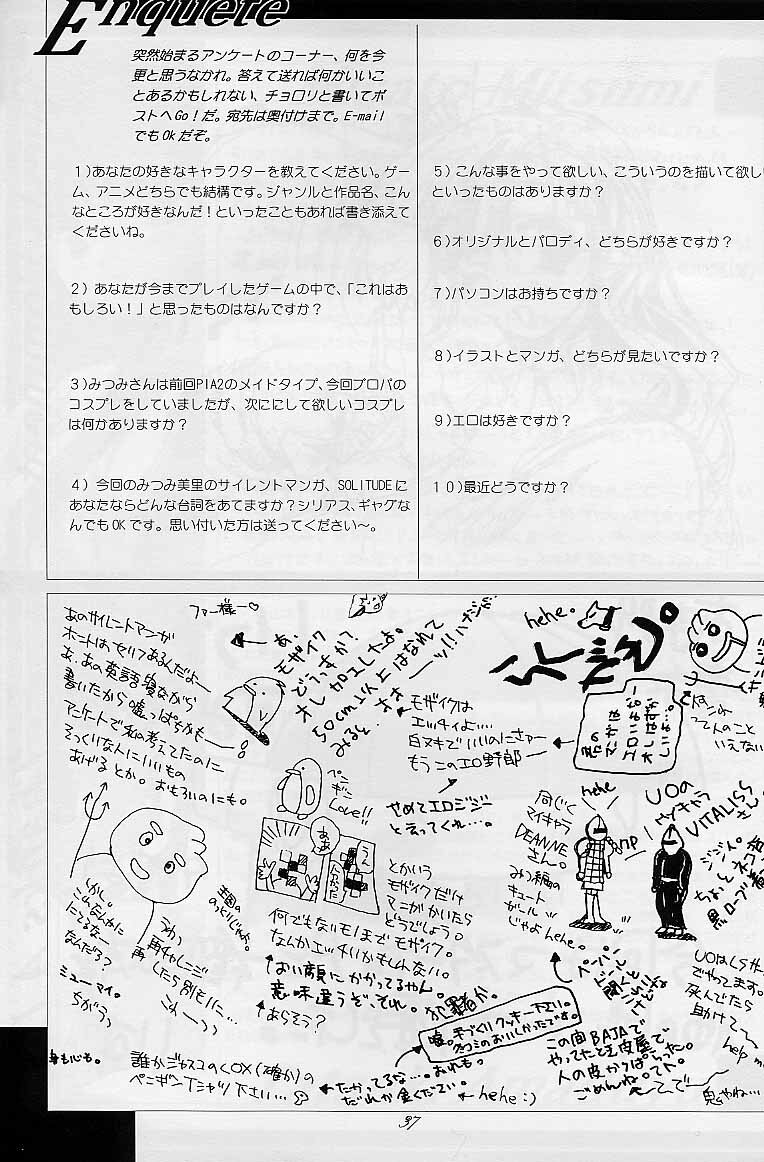 Enquete
突然始まるアンケートのコーナー、何を今
更と思うなかれ。答えて送れば何かいいこ
とあるかもしれない、チョロリと書いてポ
ストへGo！だ。宛先は奥付けまで。E-mail
でもOkだぞ。
1）あなたの好きなキャラクターを教えてください。ゲー
ム、アニメどちらでも結構です。ジャンルと作品名、こん
なところが好きなんだ！といったこともあれば書き添えて
くださいね。
2）あなたが今までプレイしたゲームの中で、「これはお
もしろい！」と思ったものはなんですか？
3）みつみさんは前回PIA2のメイドタイプ、今回プロパの
コスプレをしていましたが、次ににして欲しいコスプレ
は何かありますか？
4）今回のみつみ美里のサイレントマンガ、SOLITUDEに
あなたならどんな台詞をあてますか？シリアス、ギャグな
んでもOKです。思い付いた方は送ってください〜。
5）こんな事をやって欲しい、こういうのを描いて欲し
といったものはありますか？
6）オリジナルとパロディ、どちらが好きですか？
7）パソコンはお持ちですか？
8）イラストとマンガ、どちらが見たいですか？
9）エロは好きですか？
10）最近どうですか？
あのサイレントマンガ
ホントはセリフあるんだよー
あ、あの英語寝ながら
書いたから嘘っぱちかも
アンケートで私の考えてたのに
そっくりなんにはいいもの
あげるとか。おもろいのにも。
ファー様ー♡
あ、
モザイク
どうっすか？
オレ加工したよ。
50cm以上はなれて
みると
hehe。
モザイクは
エッチィよ…。
白ヌキでいいのにさァー
もうこのエロ野郎
やめてエロジジー
と言ってくれ…。
ペンギン
Love!!
とかいう
モザイクだけ
マニがかいたら
どうでしょう。
何でもないモノまでモザイク。
なんかエッチいかもしれない。
おい顔にかかってるやん。
意味違うぞ、それ。
あらそう？
同じく
マイキャラ
DEANNE
さん。
みつ編の
キュート
ガール
じゃよhehe。
hehe
UOの
マイキャラ
VITALISS
さん
嘘。手づくりクッキー下さい。
この間BAJAで
やってたとき皮屋で
人の皮かっぱらった。
ごめんね。
UOはLS
でやってます。
死んでたら
助けてー
help
鬼やね…
うわっ
再チャレンジ
したら別モノに…
こわーっっ
ミューマイ。
ちがうっ
身も心も。
誰かジャスコのくOX（確か）の
ペンギンTシャツ下さい…
たかってるな…。おれも。
だれか金ください。
hehe :)
37